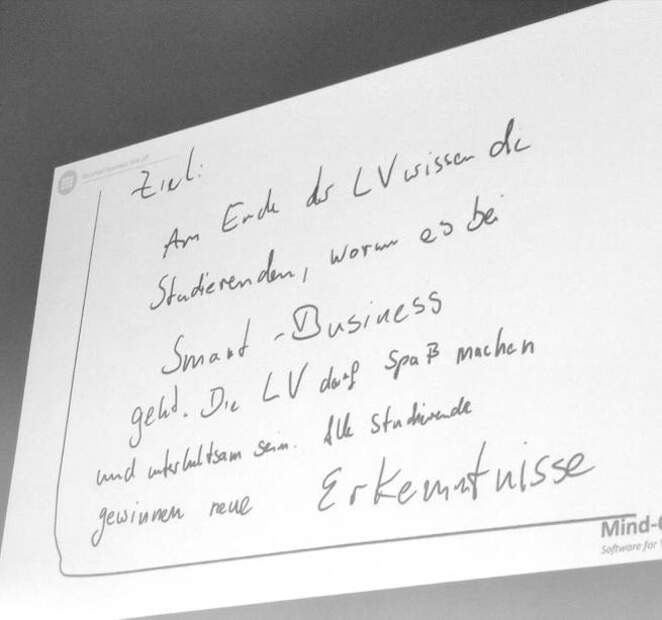 Ziel:
Am Ende der LV wissen die
Studierenden, worum es bei
Smart-Business
geht. Die LV darf Spaß machen
und unterhaltsam sein. Alle Studierende
gewinnen neue Erkenntnisse
Mind-
Software for